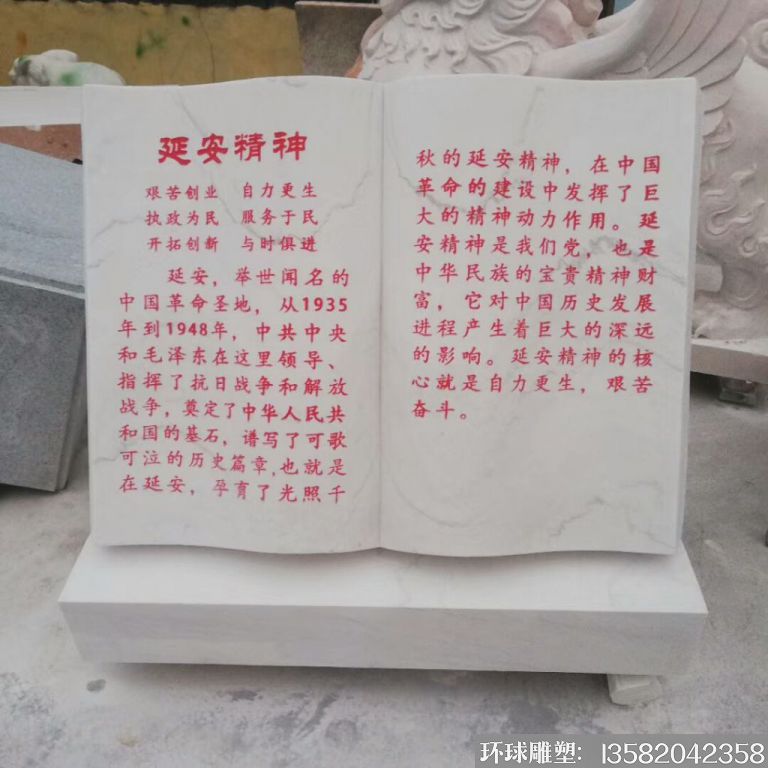 延安精神
艰苦创业 自力更生
执政为民 服务于民
开拓创新 与时俱进
延安，举世闻名的
中国革命圣地，从1935
年到1948年，中共中央
和毛泽东在这里领导、
指挥了抗日战争和解放
战争，奠定了中华人民共
和国的基石，谱写了可歌
可泣的历史篇章，也就是
在延安，孕育了光照千
秋的延安精神，在中国
革命的建设中发挥了巨
大的精神动力作用。延
安精神是我们党，也是
中华民族的宝贵精神财
富，它对中国历史发展
进程产生着巨大的深远
的影响。延安精神的核
心就是自力更生，艰苦
奋斗。
环球雕塑：13582042358